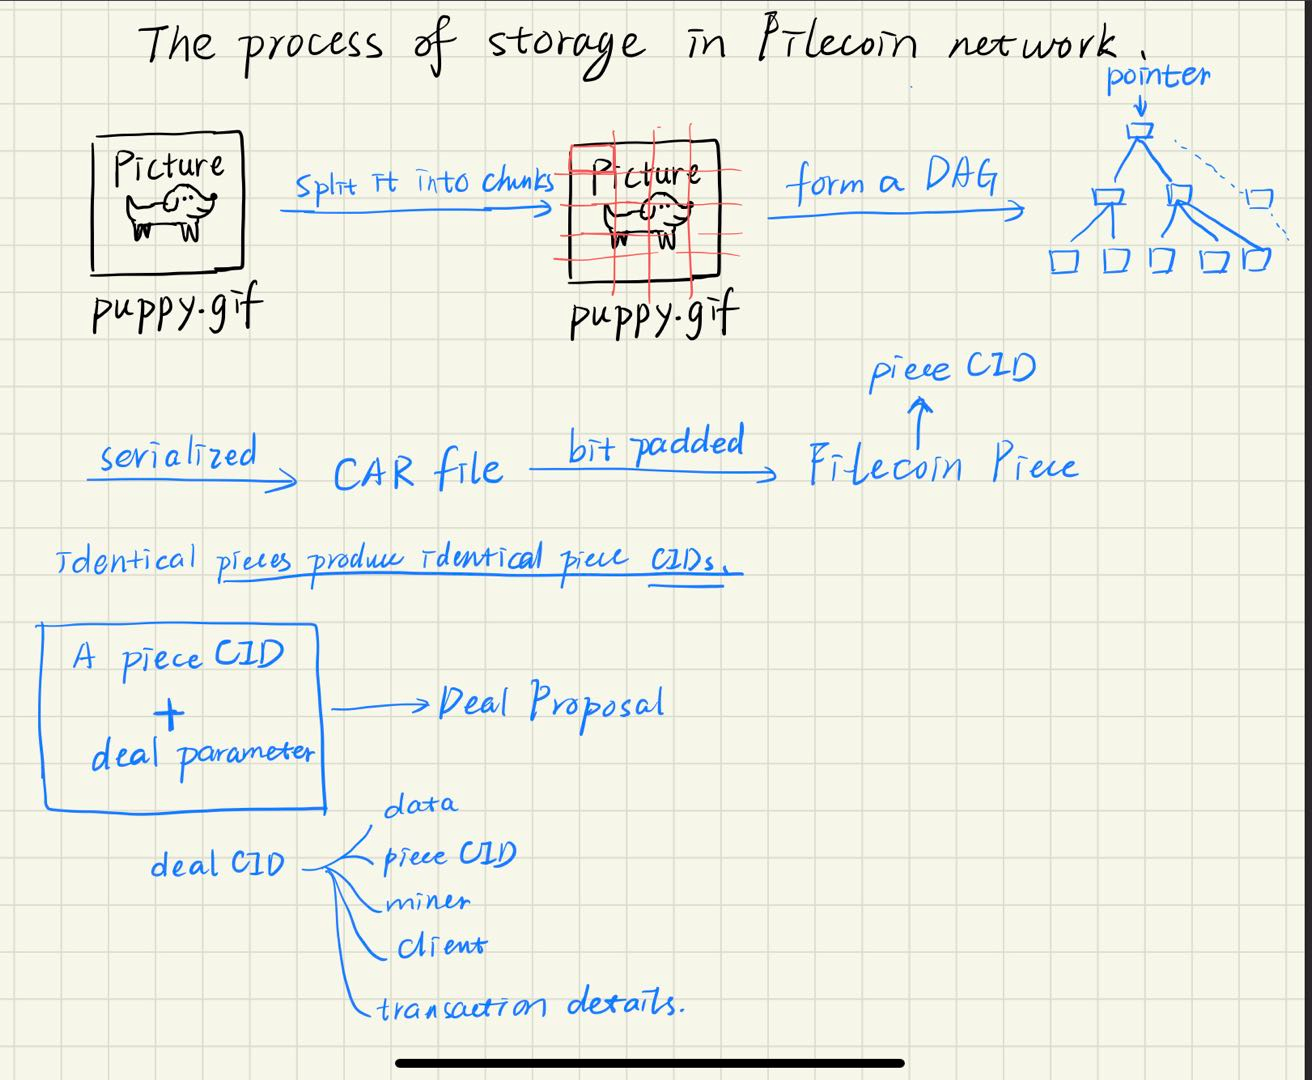 The process of storage in Filecoin network.
pointer
Picture
Split it into chunks
Picture
form a DAG
puppy.gif
puppy.gif
piece CID
serialized
CAR file
bit padded
Filecoin Piece
Identical pieces produce identical piece CIDs.
A piece CID
+
deal parameter
Deal Proposal
data
deal CID
piece CID
miner
client
transaction details.